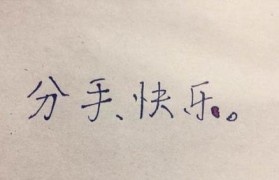 分手、快乐。